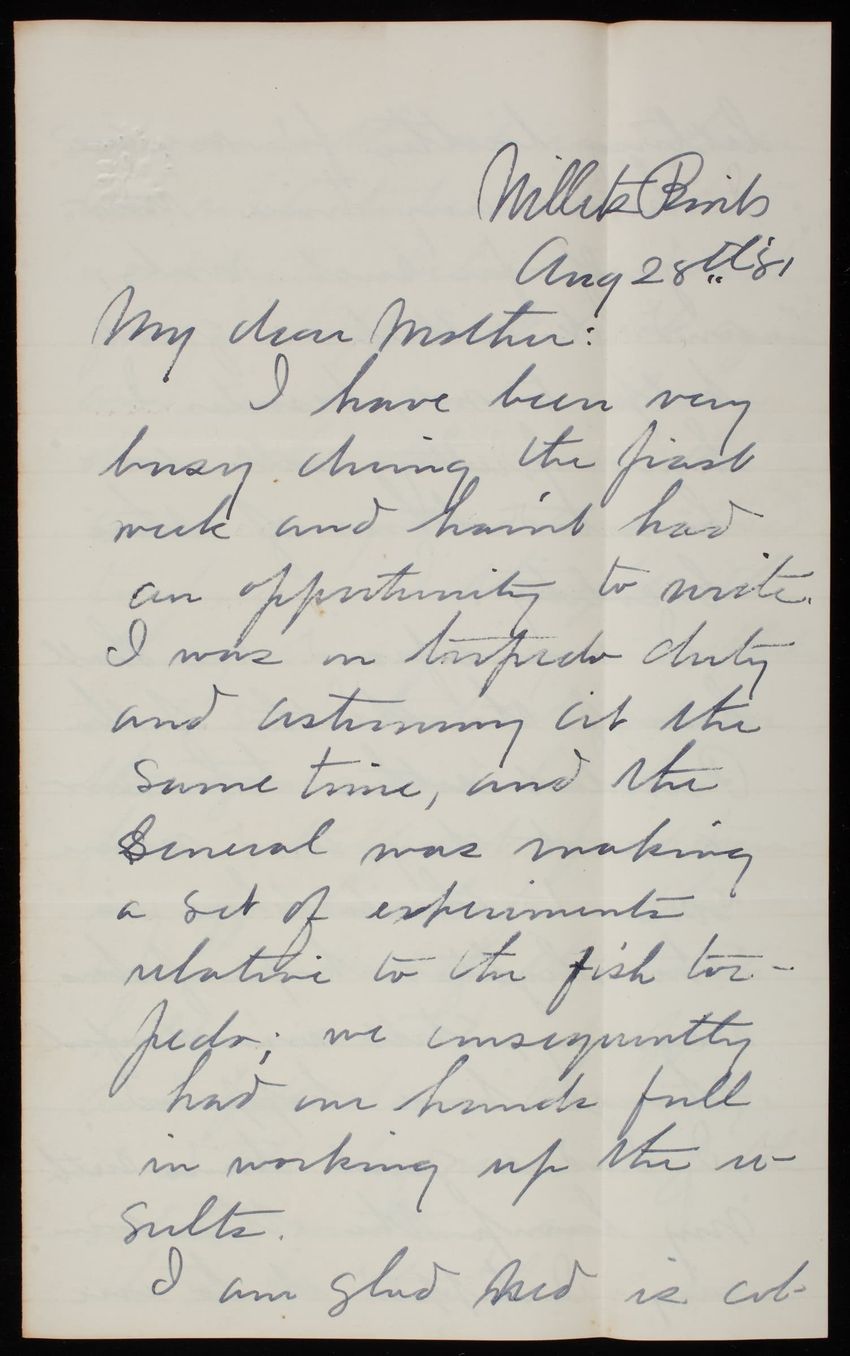 Willets Points
Aug 28th '81
My dear Mother:
I have been very
busy during the past
week and hain't had
an opportunity to write.
I was on torpedo duty
and astronomy at the
same time, and the
General was making
a set of experiments
relative to the fish tor-
pedo; we consequently
had our hands full
in working up the re-
sults.
I am glad Ned is at